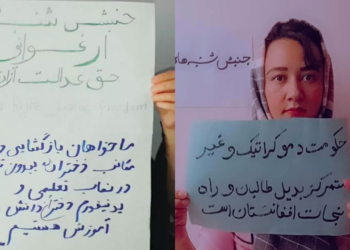 جنبش شنبه
ارغوانی
حق عدالت
ما خواهان بازگشایی
مکاتب دختران بدون
در نصاب تعلیمی و
یونیفورم دختران دانش
آموزش هستیم
جنبش شنبه های
حکومت دموکراتیک و غیر
متمرکز بدیل طالبان و راه
نجات افغانستان است